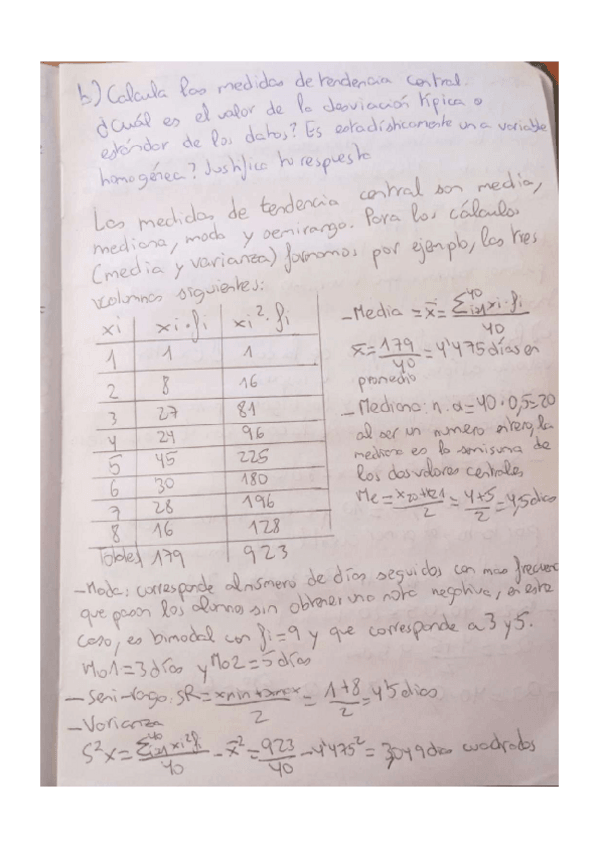 b) Calcula las medidas de tendencia central.
¿Cuál es el valor de la desviación típica o
estándar de los datos? Es estadísticamente una variable
homogénea? Justifica tu respuesta
Las medidas de tendencia central son media,
mediana, moda y semirango. Para los cálculos
(media y varianza) formamos por ejemplo, las tres
columnas siguientes:
xi | xi·fi | xi²·fi
1 | 1 | 1
2 | 8 | 16
3 | 27 | 81
4 | 24 | 96
5 | 45 | 225
6 | 30 | 180
7 | 28 | 196
8 | 16 | 128
Totales 179 | 923
- Media = x̄ = Σ⁴⁰ᵢ₌₁ xi·fi / 40
x̄ = 179/40 = 4'475 días en
promedio
- Mediana: n·α = 40·0,5=20
al ser un número entero, la
mediana es la semisuma de
los dos valores centrales
Me = x20+x21/2 = 4+5/2 = 4,5 días
- Moda: corresponde al número de días seguidos con mas frecuencia
que pasan los alumnos sin obtener una nota negativa, en este
caso, es bimodal con fi=9 y que corresponde a 3 y 5.
Mo1 = 3 días y Mo2 = 5 días
- Semi-rago: SR = xmin+xmax/2 = 1+8/2 = 4'5 días
- Varianza
S²x = Σ⁴⁰ᵢ₌₁ xi²fi/40 - x̄² = 923/40 - 4'475² = 3,049 días cuadrados